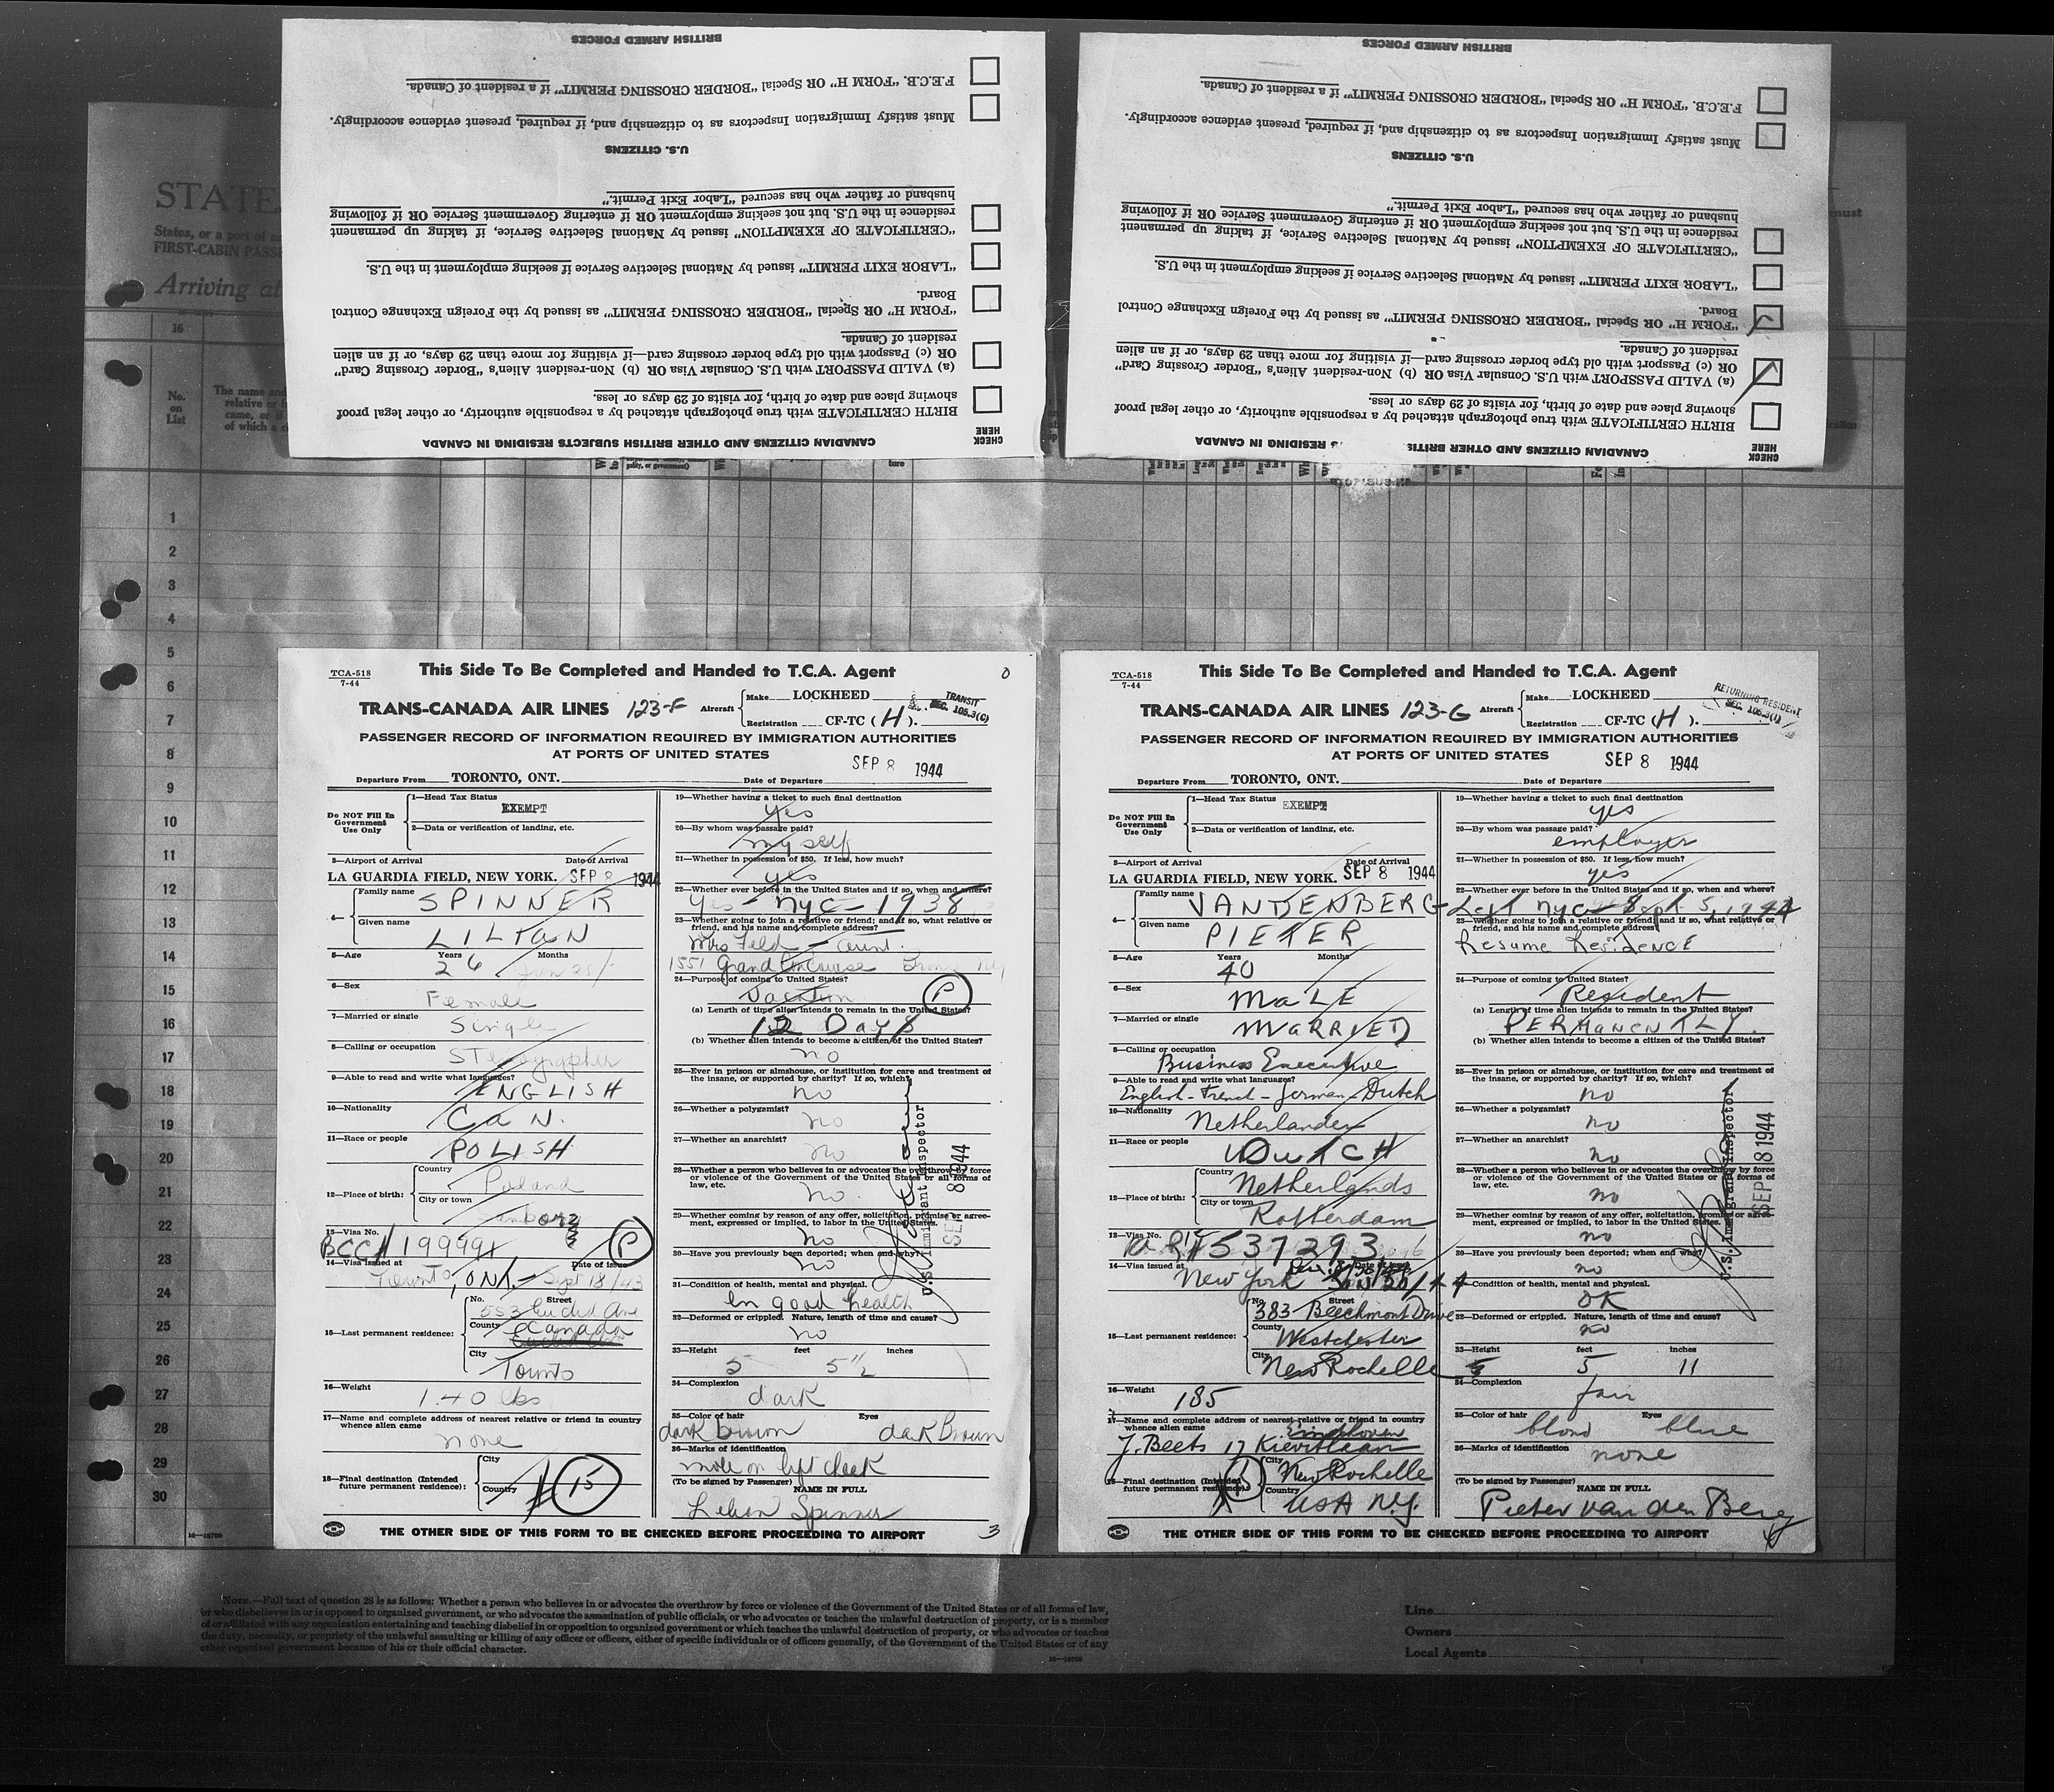 BRITISH ARMED FORCES
F.E.C.B. "FORM H" OR Special "BORDER CROSSING PERMIT" if a resident of Canada.
Must satisfy Immigration Inspectors as to citizenship and, if required, present evidence accordingly.
U.S. CITIZENS
husband or father who has secured "Labor Exit Permit."
residence in the U.S. but not seeking employment OR if entering Government Service OR if following
"CERTIFICATE OF EXEMPTION" issued by National Selective Service, if taking up permanent
"LABOR EXIT PERMIT" issued by National Selective Service if seeking employment in the U.S.
Board.
"FORM H" OR Special "BORDER CROSSING PERMIT" as issued by the Foreign Exchange Control
resident of Canada.
OR (c) Passport with old type border crossing card—if visiting for more than 29 days, or if an alien
(a) VALID PASSPORT with U.S. Consular Visa OR (b) Non-resident Alien's "Border Crossing Card"
showing place and date of birth, for visits of 29 days or less.
BIRTH CERTIFICATE with true photograph attached by a responsible authority, or other legal proof
CHECK HERE
CANADIAN CITIZENS AND OTHER BRITISH SUBJECTS RESIDING IN CANADA
BRITISH ARMED FORCES
F.E.C.B. "FORM H" OR Special "BORDER CROSSING PERMIT" if a resident of Canada.
Must satisfy Immigration Inspectors as to citizenship and, if required, present evidence accordingly.
U.S. CITIZENS
husband or father who has secured "Labor Exit Permit."
residence in the U.S. but not seeking employment OR if entering Government Service OR if following
"CERTIFICATE OF EXEMPTION" issued by National Selective Service, if taking up permanent
"LABOR EXIT PERMIT" issued by National Selective Service if seeking employment in the U.S.
Board.
"FORM H" OR Special "BORDER CROSSING PERMIT" as issued by the Foreign Exchange Control
resident of Canada.
OR (c) Passport with old type border crossing card—if visiting for more than 29 days, or if an alien
(a) VALID PASSPORT with U.S. Consular Visa OR (b) Non-resident Alien's "Border Crossing Card"
showing place and date of birth, for visits of 29 days or less.
BIRTH CERTIFICATE with true photograph attached by a responsible authority, or other legal proof
CHECK HERE
CANADIAN CITIZENS AND OTHER RESIDING IN CANADA
STATE
States, or a port of
FIRST-CABIN PASS
Arriving at
16
No. on List
The name and
relative or
came, or
of which a
1
2
3
4
5
6
7
8
9
10
11
12
13
14
15
16
17
18
19
20
21
22
23
24
25
26
27
28
29
30
TCA-518
7-44
This Side To Be Completed and Handed to T.C.A. Agent
TRANS-CANADA AIR LINES 123-F Aircraft Make LOCKHEED
Registration CF-TC (H).
TRANSIT
SEC. 105.3(C)
PASSENGER RECORD OF INFORMATION REQUIRED BY IMMIGRATION AUTHORITIES
AT PORTS OF UNITED STATES
SEP 8 1944
Departure From TORONTO, ONT. Date of Departure
Do NOT Fill In Government Use Only
1—Head Tax Status EXEMPT
2—Data or verification of landing, etc.
3—Airport of Arrival Date of Arrival
LA GUARDIA FIELD, NEW YORK. SEP 8 1944
4— Family name SPINNER
Given name LILIAN
5—Age Years Months
26
6—Sex Female
7—Married or single Single
8—Calling or occupation Stenographer
9—Able to read and write what languages? ENGLISH
10—Nationality CAN.
11—Race or people POLISH
12—Place of birth: Country Poland
City or town
13—Visa No. BCC# 199991 P
14—Visa issued at Date of issue
Toronto, ONT. - Sept 18/43
15—Last permanent residence: No. Street 553 Euclid Ave
County Canada
City Toronto
16—Weight 140 lbs
17—Name and complete address of nearest relative or friend in country
whence alien came
none
18—Final destination (Intended future permanent residence): City
Country 15
19—Whether having a ticket to such final destination
yes
20—By whom was passage paid?
myself
21—Whether in possession of $50. If less, how much?
yes
22—Whether ever before in the United States and if so, when and where?
Yes - NYC - 1938
23—Whether going to join a relative or friend; and if so, what relative or
friend, and his name and complete address?
Mrs Feld - Aunt.
1551 Grand Concourse Bronx NY
24—Purpose of coming to United States?
Vacation P
(a) Length of time alien intends to remain in the United States?
12 Days
(b) Whether alien intends to become a citizen of the United States?
no
25—Ever in prison or almshouse, or institution for care and treatment of
the insane, or supported by charity? If so, which?
no
26—Whether a polygamist?
no
27—Whether an anarchist?
no
28—Whether a person who believes in or advocates the overthrow by force
or violence of the Government of the United States or all forms of
law, etc.
no.
29—Whether coming by reason of any offer, solicitation, promise or agree-
ment, expressed or implied, to labor in the United States.
no
30—Have you previously been deported; when and why?
no
31—Condition of health, mental and physical.
In good health
32—Deformed or crippled. Nature, length of time and cause?
no
33—Height feet inches
5 5 1/2
34—Complexion
dark
35—Color of hair Eyes
dark brown dark Brown
36—Marks of identification
mole on left cheek
(To be signed by Passenger) NAME IN FULL
Lilian Spinner
U.S. Immigrant Inspector
SEP 8 1944
THE OTHER SIDE OF THIS FORM TO BE CHECKED BEFORE PROCEEDING TO AIRPORT
3
TCA-518
7-44
This Side To Be Completed and Handed to T.C.A. Agent
TRANS-CANADA AIR LINES 123-G Aircraft Make LOCKHEED
Registration CF-TC (H).
RETURNING RESIDENT
SEC. 105.3(1)
PASSENGER RECORD OF INFORMATION REQUIRED BY IMMIGRATION AUTHORITIES
AT PORTS OF UNITED STATES
SEP 8 1944
Departure From TORONTO, ONT. Date of Departure
Do NOT Fill In Government Use Only
1—Head Tax Status EXEMPT
2—Data or verification of landing, etc.
3—Airport of Arrival Date of Arrival
LA GUARDIA FIELD, NEW YORK. SEP 8 1944
4— Family name VANDENBERG
Given name PIETER
5—Age Years Months
40
6—Sex MALE
7—Married or single MARRIED
8—Calling or occupation Business Executive
9—Able to read and write what languages?
English - French - German - Dutch
10—Nationality Netherlander
11—Race or people DUTCH
12—Place of birth: Country Netherlands
City or town Rotterdam
13—Visa No. 537293
14—Visa issued at New York
15—Last permanent residence: No. Street 383 Beechmont Drive
County Westchester
City New Rochelle
16—Weight 185
17—Name and complete address of nearest relative or friend in country
whence alien came Eindhoven
J. Beets 17 Kievitlaan
18—Final destination (Intended future permanent residence): City New Rochelle
Country USA N.Y.
19—Whether having a ticket to such final destination
yes
20—By whom was passage paid?
employer
21—Whether in possession of $50. If less, how much?
yes
22—Whether ever before in the United States and if so, when and where?
Left NYC Sept 5, 1944
23—Whether going to join a relative or friend; and if so, what relative or
friend, and his name and complete address?
Resume Residence
24—Purpose of coming to United States?
Resident
(a) Length of time alien intends to remain in the United States?
PERMANENTLY.
(b) Whether alien intends to become a citizen of the United States?
25—Ever in prison or almshouse, or institution for care and treatment of
the insane, or supported by charity? If so, which?
no
26—Whether a polygamist?
no
27—Whether an anarchist?
no
28—Whether a person who believes in or advocates the overthrow by force
or violence of the Government of the United States or all forms of
law, etc.
no
29—Whether coming by reason of any offer, solicitation, promise or agree-
ment, expressed or implied, to labor in the United States.
no
30—Have you previously been deported; when and why?
no
31—Condition of health, mental and physical.
OK
32—Deformed or crippled. Nature, length of time and cause?
no
33—Height feet inches
5 11
34—Complexion
fair
35—Color of hair Eyes
blond blue
36—Marks of identification
none
(To be signed by Passenger) NAME IN FULL
Pieter van den Berg
U.S. Immigrant Inspector
SEP 8 1944
THE OTHER SIDE OF THIS FORM TO BE CHECKED BEFORE PROCEEDING TO AIRPORT
16—18700
NOTE.—Full text of question 28 is as follows: Whether a person who believes in or advocates the overthrow by force or violence of the Government of the United States or of all forms of law,
or who disbelieves in or is opposed to organized government, or who advocates the assassination of public officials, or who advocates or teaches the unlawful destruction of property, or is a member
of or affiliated with any organization entertaining and teaching disbelief in or opposition to organized government or which teaches the unlawful destruction of property, or who advocates or teaches
the duty, necessity, or propriety of the unlawful assaulting or killing of any officer or officers, either of specific individuals or of officers generally, of the Government of the United States or of any
other organized government because of his or their official character.
Line
Owners
Local Agents